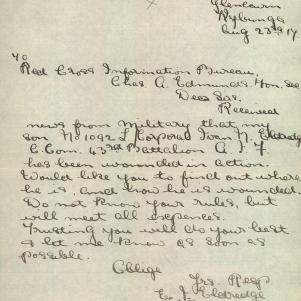 Glenlearn
Rybunga
Aug 23rd 17
To
Red Cross Information Bureau,
Chas A. Edmunds, Hon. Sec
Dear Sir.
Received
news from Military that my
son No 1092 L Corporal Ivan N. Eldredge
C. Com. 43rd Battalion A. I. F
has been wounded in action.
Would like you to find out where
he is, and how he is wounded.
Do not know your rules, but
will meet all expences.
Trusting you will do your best
& let me know as soon as
possible.
Oblige
Yrs. Resp
E. J. Eldredge